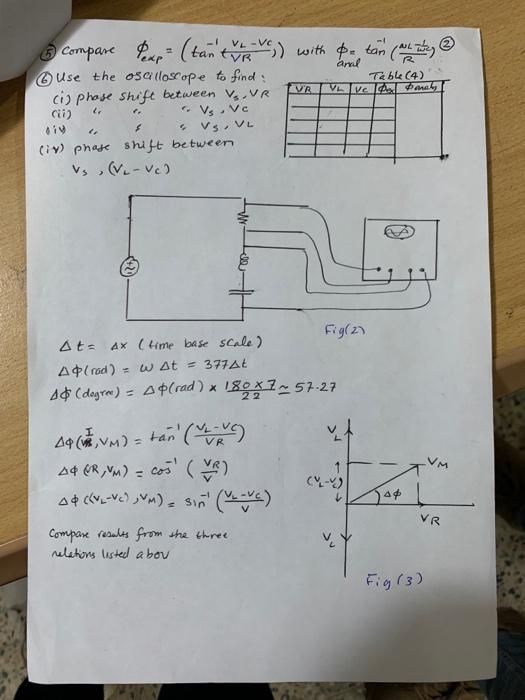 ⑤ Compare Φexp = (tan⁻¹(VL-VC/VR)) with Φanal = tan⁻¹(WL-1/WC / R) ②
⑥ Use the oscilloscope to find:
Table(4)
(i) phase shift between Vs, VR
VR VL VC Φex Φanaly
(ii) " " " Vs, VC
" " Vs, VL
(iv) phase shift between
Vs, (VL-VC)
Fig(2)
Δt = Δx (time base scale)
Δϕ(rad) = ω Δt = 377Δt
Δϕ (degree) = Δϕ(rad) * 180 x 7 / 22 ≃ 57.27
Δϕ(I, VM) = tan⁻¹ (VL-VC / VR)
Δϕ (VR, VM) = cos⁻¹ (VR / V)
Δϕ ((VL-VC), VM) = sin⁻¹ (VL-VC / V)
Compare results from the three
relations listed abov
VL
VM
(VL-VC)
Δϕ
VR
VL
Fig(3)